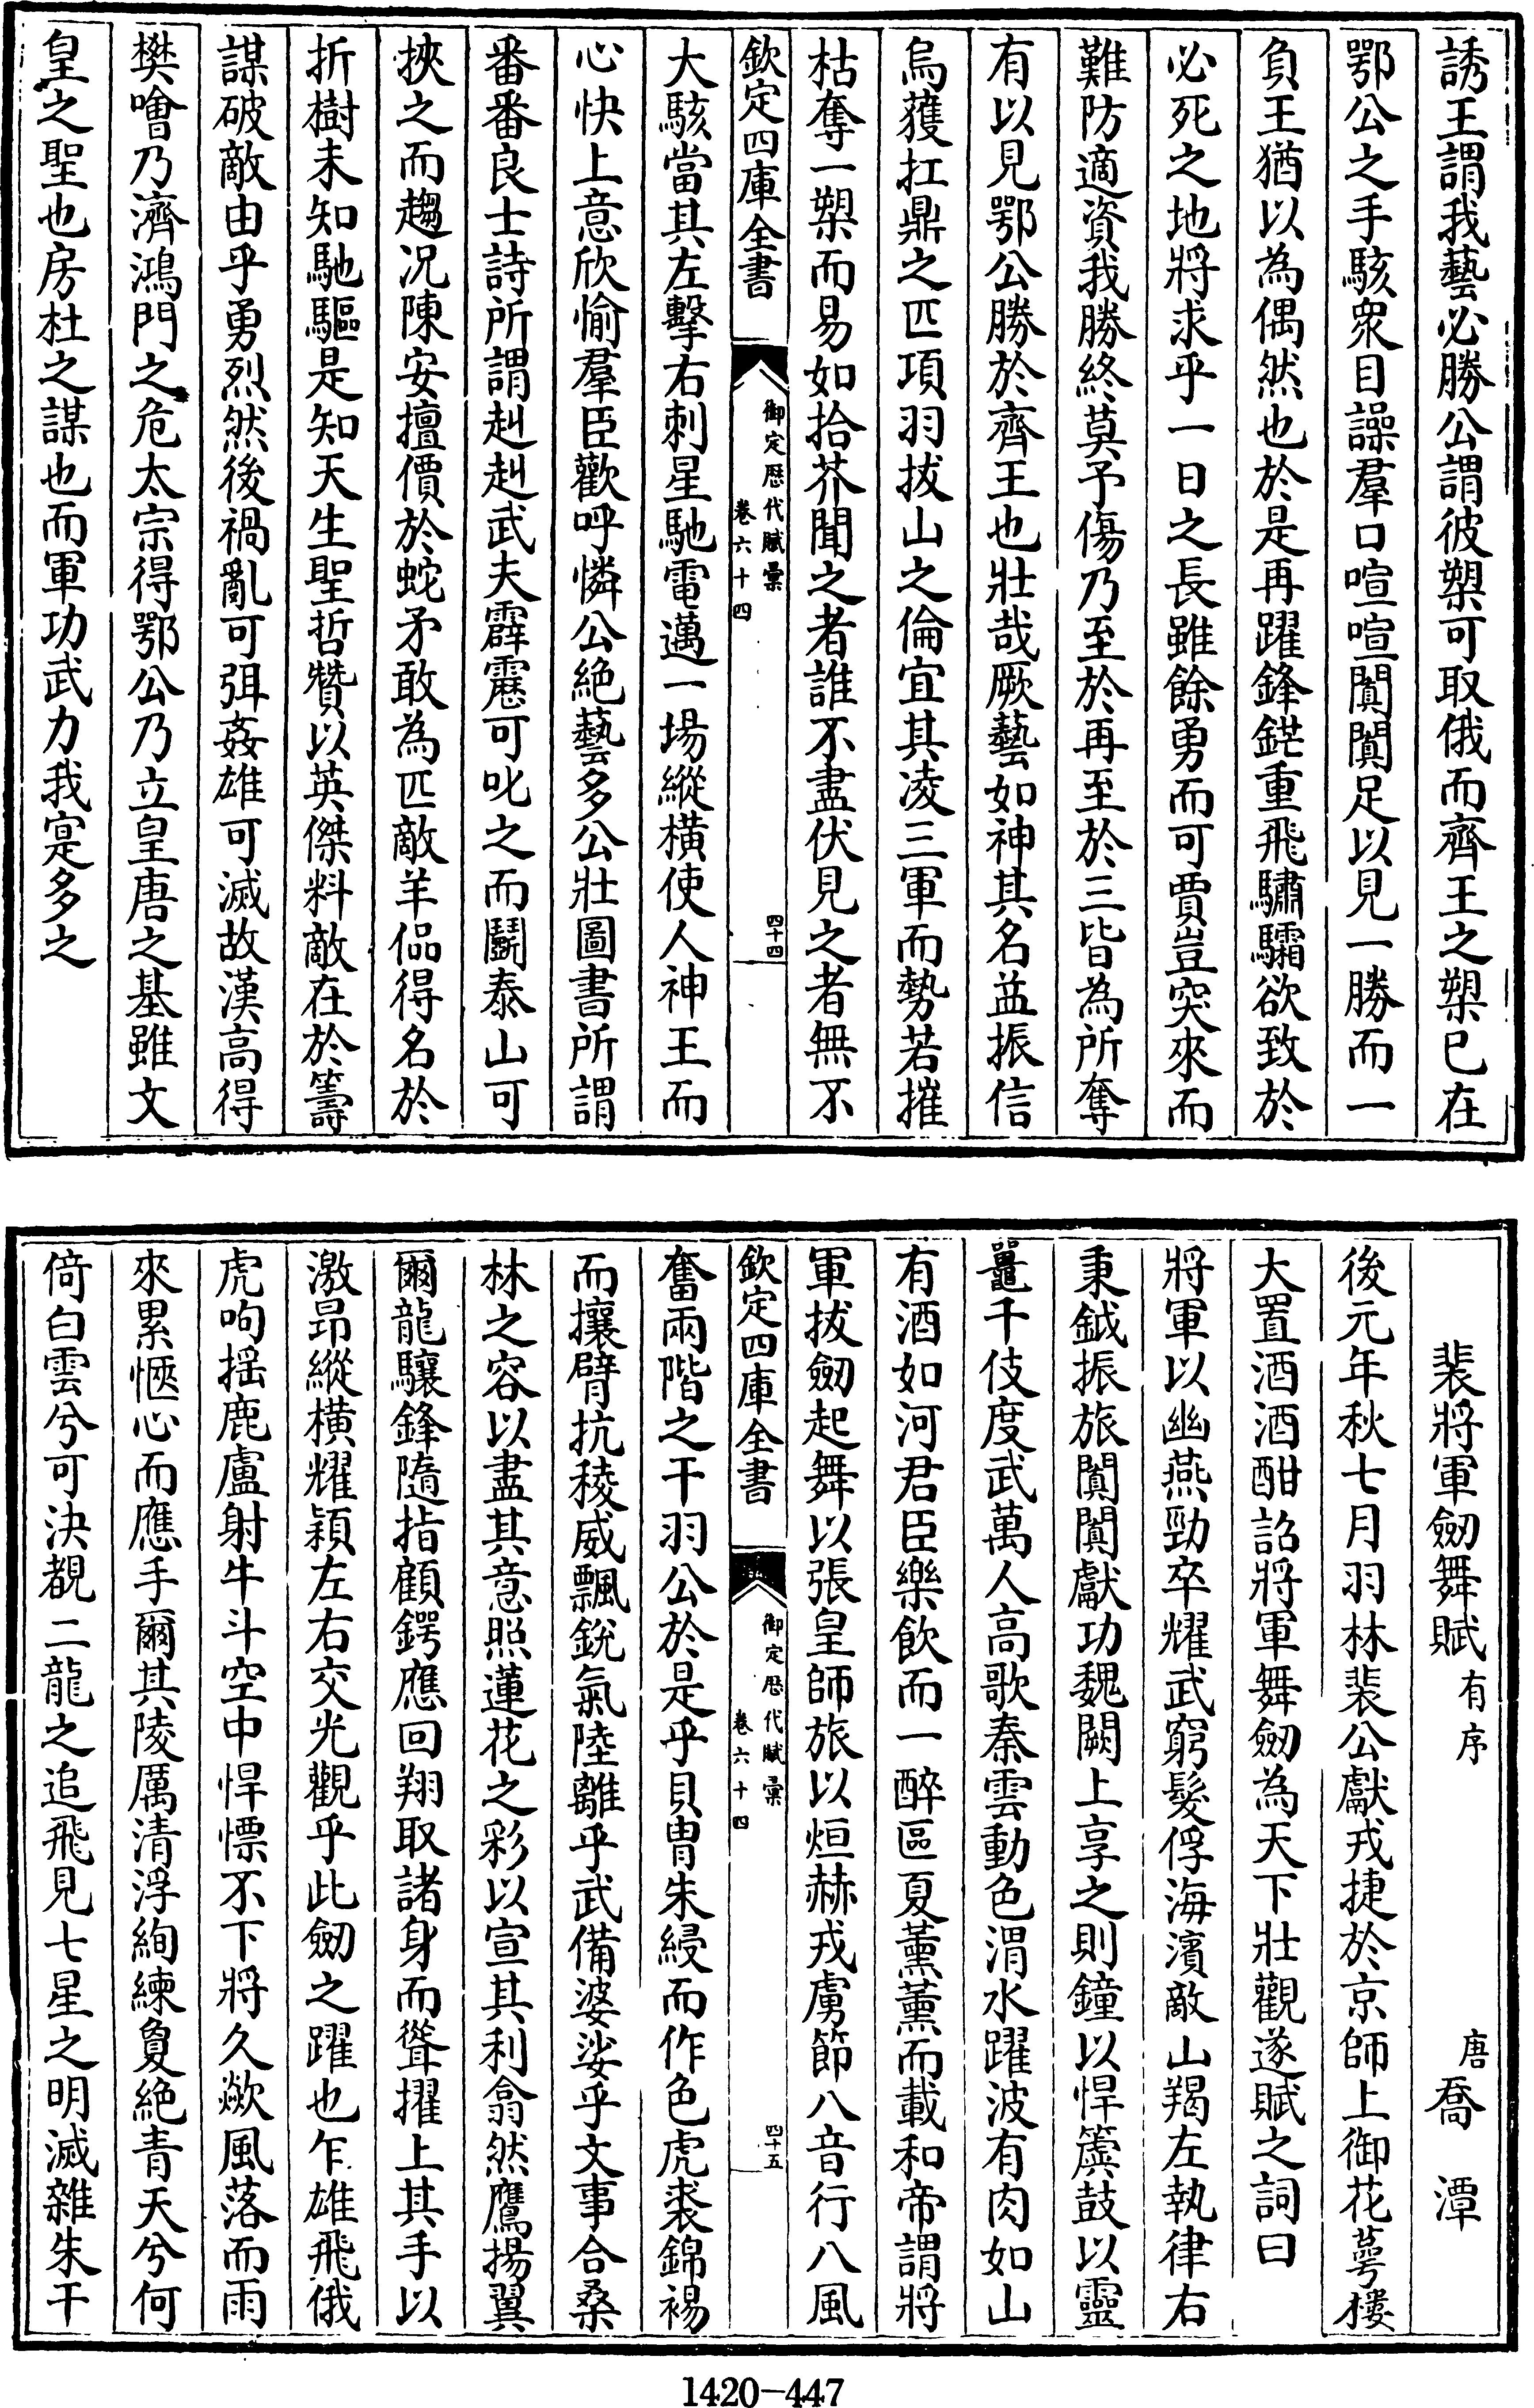 誘王謂我藝必勝公謂彼槊可取俄而齊王之槊已在
鄂公之手駭衆目譟羣口喧喧闐闐足以見一勝而一
負王猶以為偶然也於是再躍鋒鋩重飛驌驦欲致於
必死之地將求乎一日之長雖餘勇而可賈豈突來而
難防適資我勝終莫予傷乃至於再至於三皆為所奪
有以見鄂公勝於齊王也壯哉厥藝如神其名益振信
烏獲扛鼎之匹項羽拔山之倫宜其凌三軍而勢若摧
枯奪一槊而易如拾芥聞之者誰不盡伏見之者無不
欽定四庫全書
御定歷代賦彙
卷六十四
四十四
大駭當其左擊右刺星馳電邁一場縱橫使人神王而
心快上意欣愉羣臣歡呼憐公絶藝多公壯圖書所謂
番番良士詩所謂赳赳武夫霹靂可叱之而鬭泰山可
挾之而趨况陳安擅價於蛇矛敢為匹敵羊侃得名於
折樹未知馳驅是知天生聖哲贊以英傑料敵在於籌
謀破敵由乎勇烈然後禍亂可弭姦雄可滅故漢高得
樊噲乃濟鴻門之危太宗得鄂公乃立皇唐之基雖文
皇之聖也房杜之謀也而軍功武力我寔多之
裴將軍劒舞賦有序
唐喬潭
後元年秋七月羽林裴公獻戎捷於京師上御花萼樓
大置酒酒酣詔將軍舞劒為天下壯觀遂賦之詞曰
將軍以幽燕勁卒耀武窮髮俘海濱敵山羯左執律右
秉鉞振旅闐闐獻功魏闕上享之則鐘以悍簴鼓以靈
鼉千伎度武萬人高歌秦雲動色渭水躍波有肉如山
有酒如河君臣樂飲而一醉區夏薰薰而載和帝謂將
軍拔劒起舞以張皇師旅以烜赫戎虜節八音行八風
欽定四庫全書
御定歷代賦彙
卷六十四
四十五
奮兩階之干羽公於是乎貝胄朱綅而作色虎裘錦裼
而攘臂抗稜威飄銳氣陸離乎武備婆娑乎文事合桑
林之容以盡其意照蓮花之彩以宣其利翕然鷹揚翼
爾龍驤鋒隨指顧鍔應回翔取諸身而聳擢上其手以
激昂縱橫耀穎左右交光觀乎此劒之躍也乍雄飛俄
虎呴揺鹿盧射牛斗空中悍慓不下將久歘風落而雨
來累愜心而應手爾其陵厲清浮絢練敻絶青天兮何
倚白雲兮可決覩二龍之追飛見七星之明滅雜朱干
1420-447